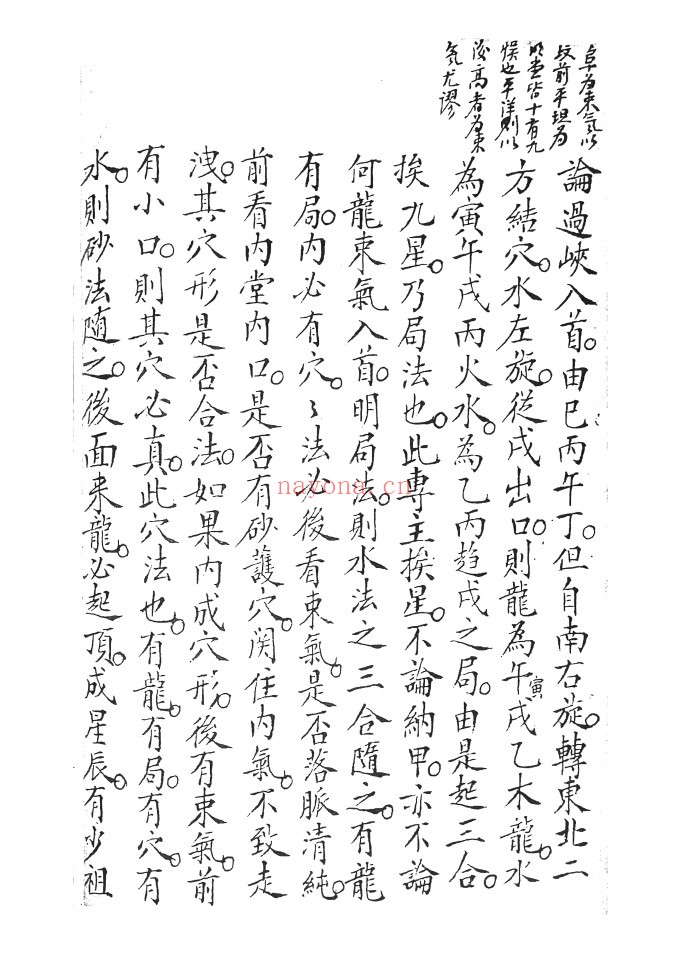 阜为束气以
政前平坦为
明堂皆十有九
悮也平洋则以
後高者为束
氣尤謬
論過峽入首。由巳丙午丁。但自南右旋。轉東北二
方結穴。水左旋。從戌出口。則龍為午寅戌乙木龍。水
為寅午戌丙火水。為乙丙趋戌之局。由是起三合。
挨九星。乃局法也。此専主挨星。不論納甲。亦不論
何龍束氣入首。明局法。則水法之三合隨之。有龍
有局。内必有穴。〻法必後看束氣。是否落脈清純。
前看内堂内口。是否有砂護穴。関住内氣。不致走
洩。其穴形是否合法。如果内成穴形。後有束氣。前
有小口。則其穴必真。此穴法也。有龍。有局。有穴。有
水。則砂法随之。後面来龍。必起頂。成星辰。有少祖
nayona.cn